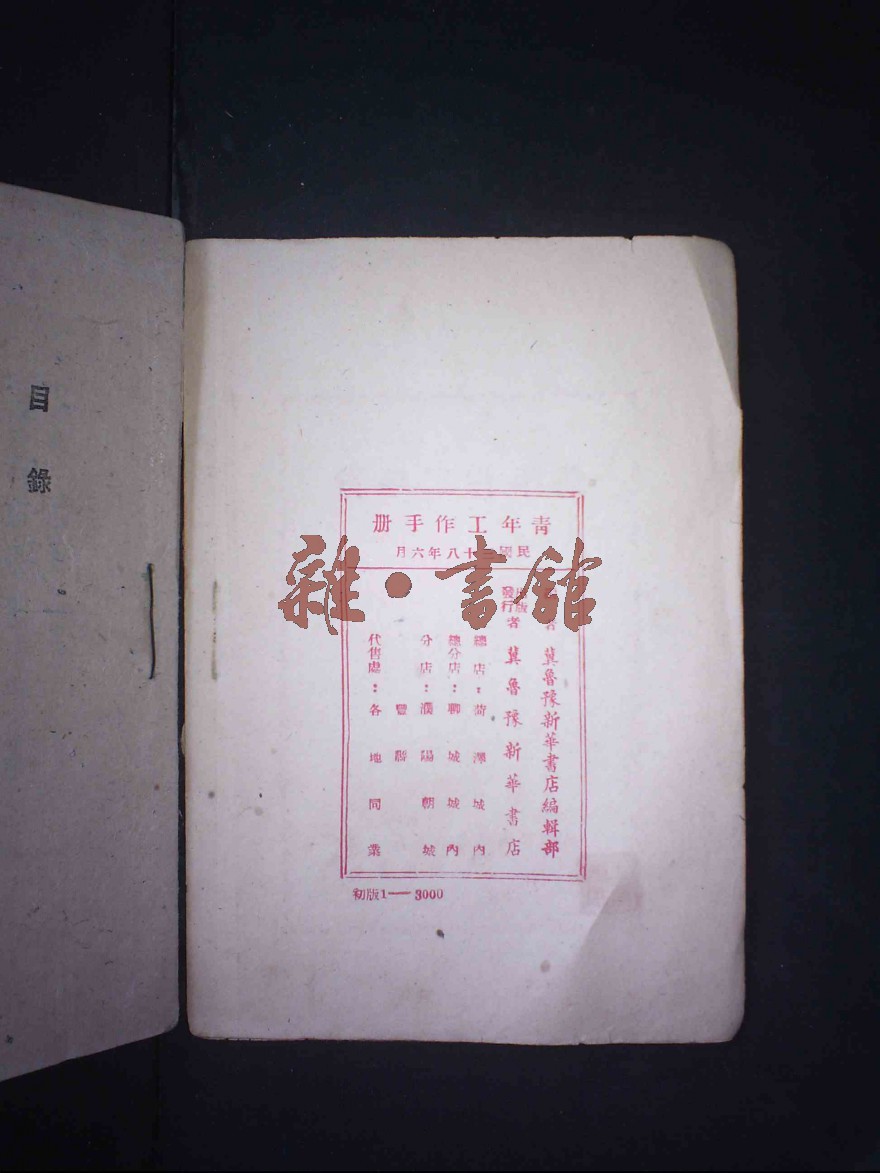 青年工作手册
民國十八年六月
者 冀魯豫新華書店編輯部
出版發行者 冀魯豫新華書店
總店：菏澤城內
總分店：聊城城內
分店：濮陽朝城
豐縣
代售處：各地同業
初版1—3000
目錄
雜·書館